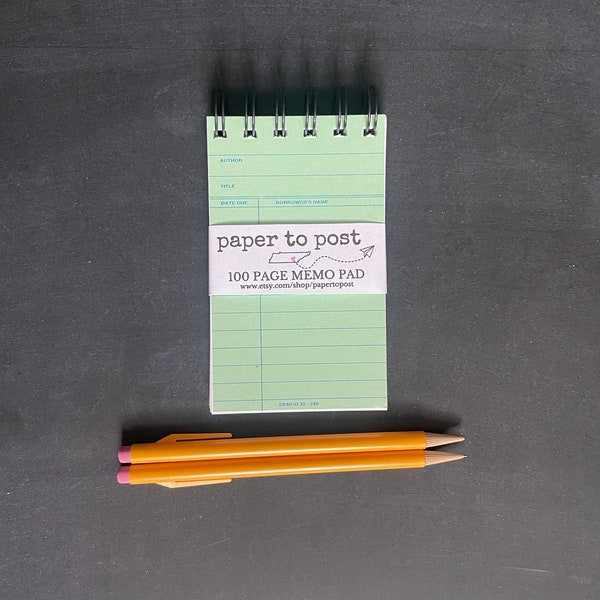 AUTHOR
TITLE
DATE DUE BORROWER'S NAME
paper to post
100 PAGE MEMO PAD
www.etsy.com/shop/papertopost
DEMCO